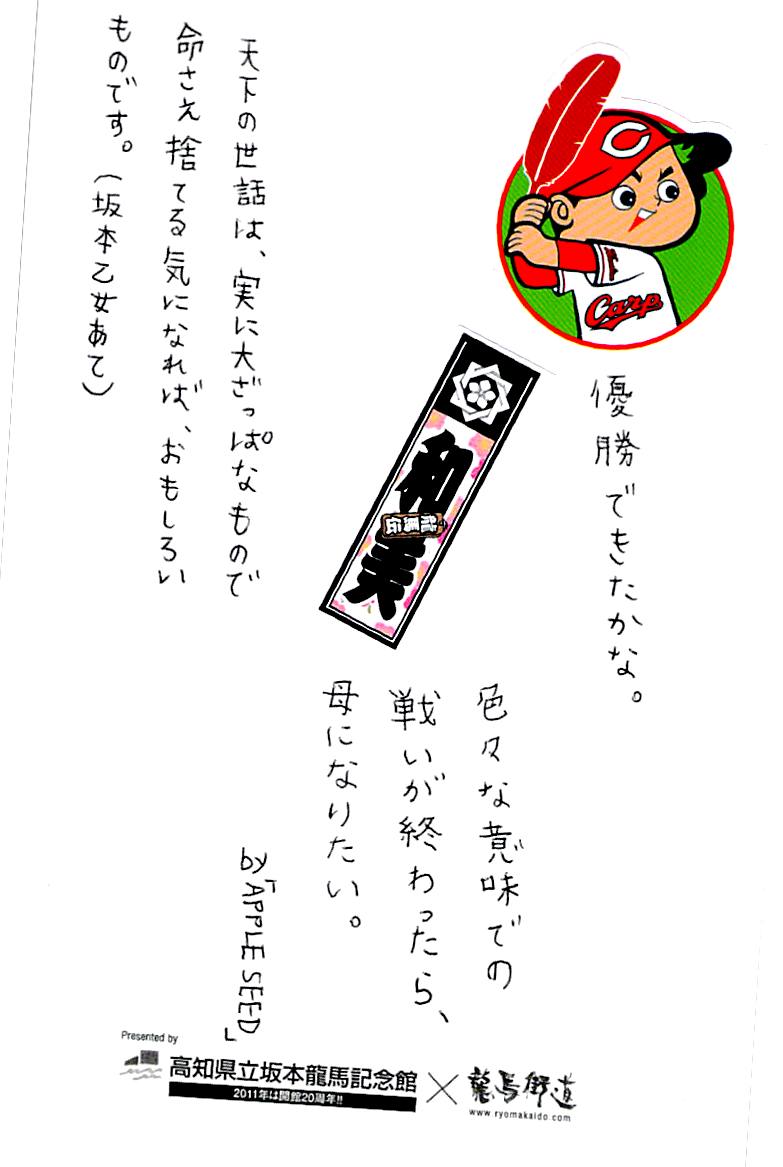 C
Carp
優勝できたかな。
和美
龍馬伝
色々な意味での
戦いが終わったら、
母になりたい。
by「APPLE SEED」
天下の世話は、実に大ざっぱなもので
命さえ捨てる気になれば、おもしろい
ものです。(坂本乙女あて)
Presented by
高知県立坂本龍馬記念館
2011年は開館20周年!!
×
龍馬街道
www.ryomakaido.com